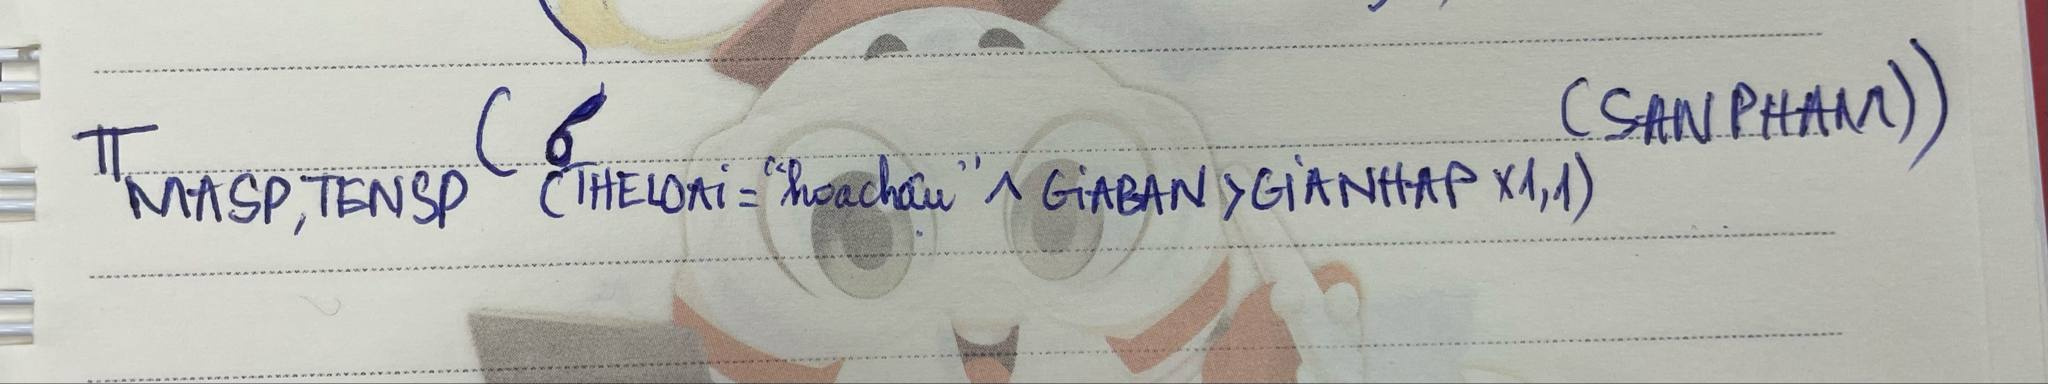 π MASP,TENSP (σ (THELOAi = "hoachâu" ∧ GiABAN > GiANHAP x1,1) (SANPHAM))